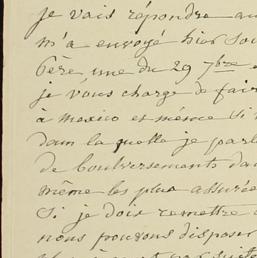 je vais répondre au
m'a envoyé hier sou
Père, une du 29 7bre e
je vous charge de fair
à mexico et même si
dans la quelle je parl
de boulversements da
meme les plus assurée
Si je dois remettre
nous pouvons disposer